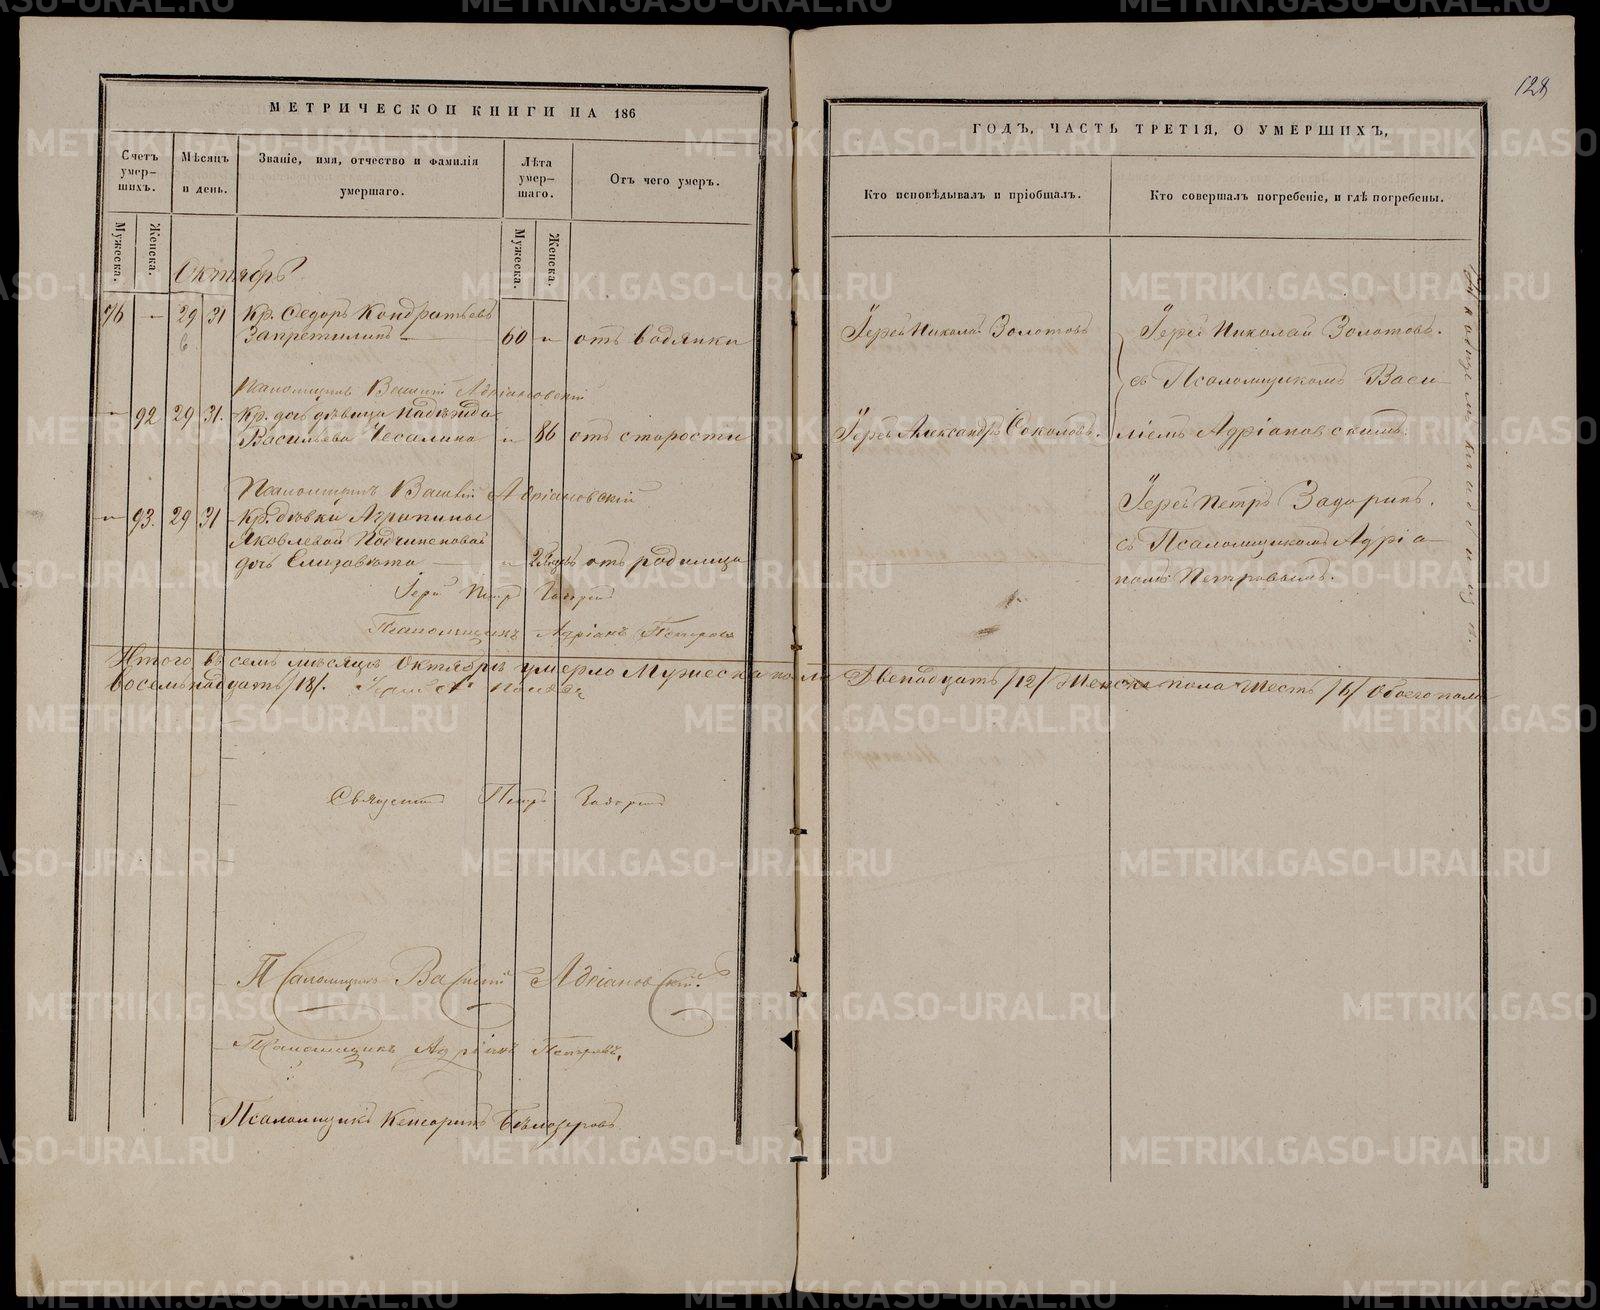 128
МЕТРИЧЕСКОЙ КНИГИ НА 186
Счетъ умер-шихъ.
Мѣсяцъ и день.
Званіе, имя, отчество и фамилія умершаго.
Лѣта умер-шаго.
Отъ чего умеръ.
Мужеска.
Женска.
Мужеска.
Женска.
Октябрь
76 — 29 31 Кр. Ѳедоръ Кондратьевъ
Запретилинъ — 60 „ отъ водянки
Псаломщикъ Василій Адріановскій
„ 92 29 31. Кр. дочь дѣвица Надежда
Васильева Чесалина „ 86 отъ старости
Псаломщикъ Василій Адріановскій
„ 93. 29 31 Кр. дѣвки Агрипины
Яковлевой Подчиненовой
дочь Елизавета — „ отъ родимца
Іерей Петръ Задоринъ
Псаломщикъ Адріанъ Петровъ
Итого въ семъ мѣсяцѣ Октябрѣ умерло Мужеска пола
восемьнадцать /18/.
Священникъ Петръ Задоринъ
Псаломщикъ Василій Адріановскій.
Псаломщикъ Адріанъ Петровъ.
Псаломщикъ Кенсоринъ Бѣлозеровъ
ГОДЪ, ЧАСТЬ ТРЕТІЯ, О УМЕРШИХЪ,
Кто исповѣдывалъ и пріобщалъ.
Кто совершалъ погребеніе, и гдѣ погребены.
Іерей Николай Золотовъ
Іерей Николай Золотовъ.
съ Псаломщикомъ Васи-
Іерей Александръ Соколовъ.
ліемъ Адріановскимъ.
Іерей Петръ Задоринъ.
съ Псаломщикомъ Адріа-
номъ Петровымъ.
Двенадцать /12/ Женска пола шесть /6/ обоего пола
METRIKI.GASO-URAL.RU